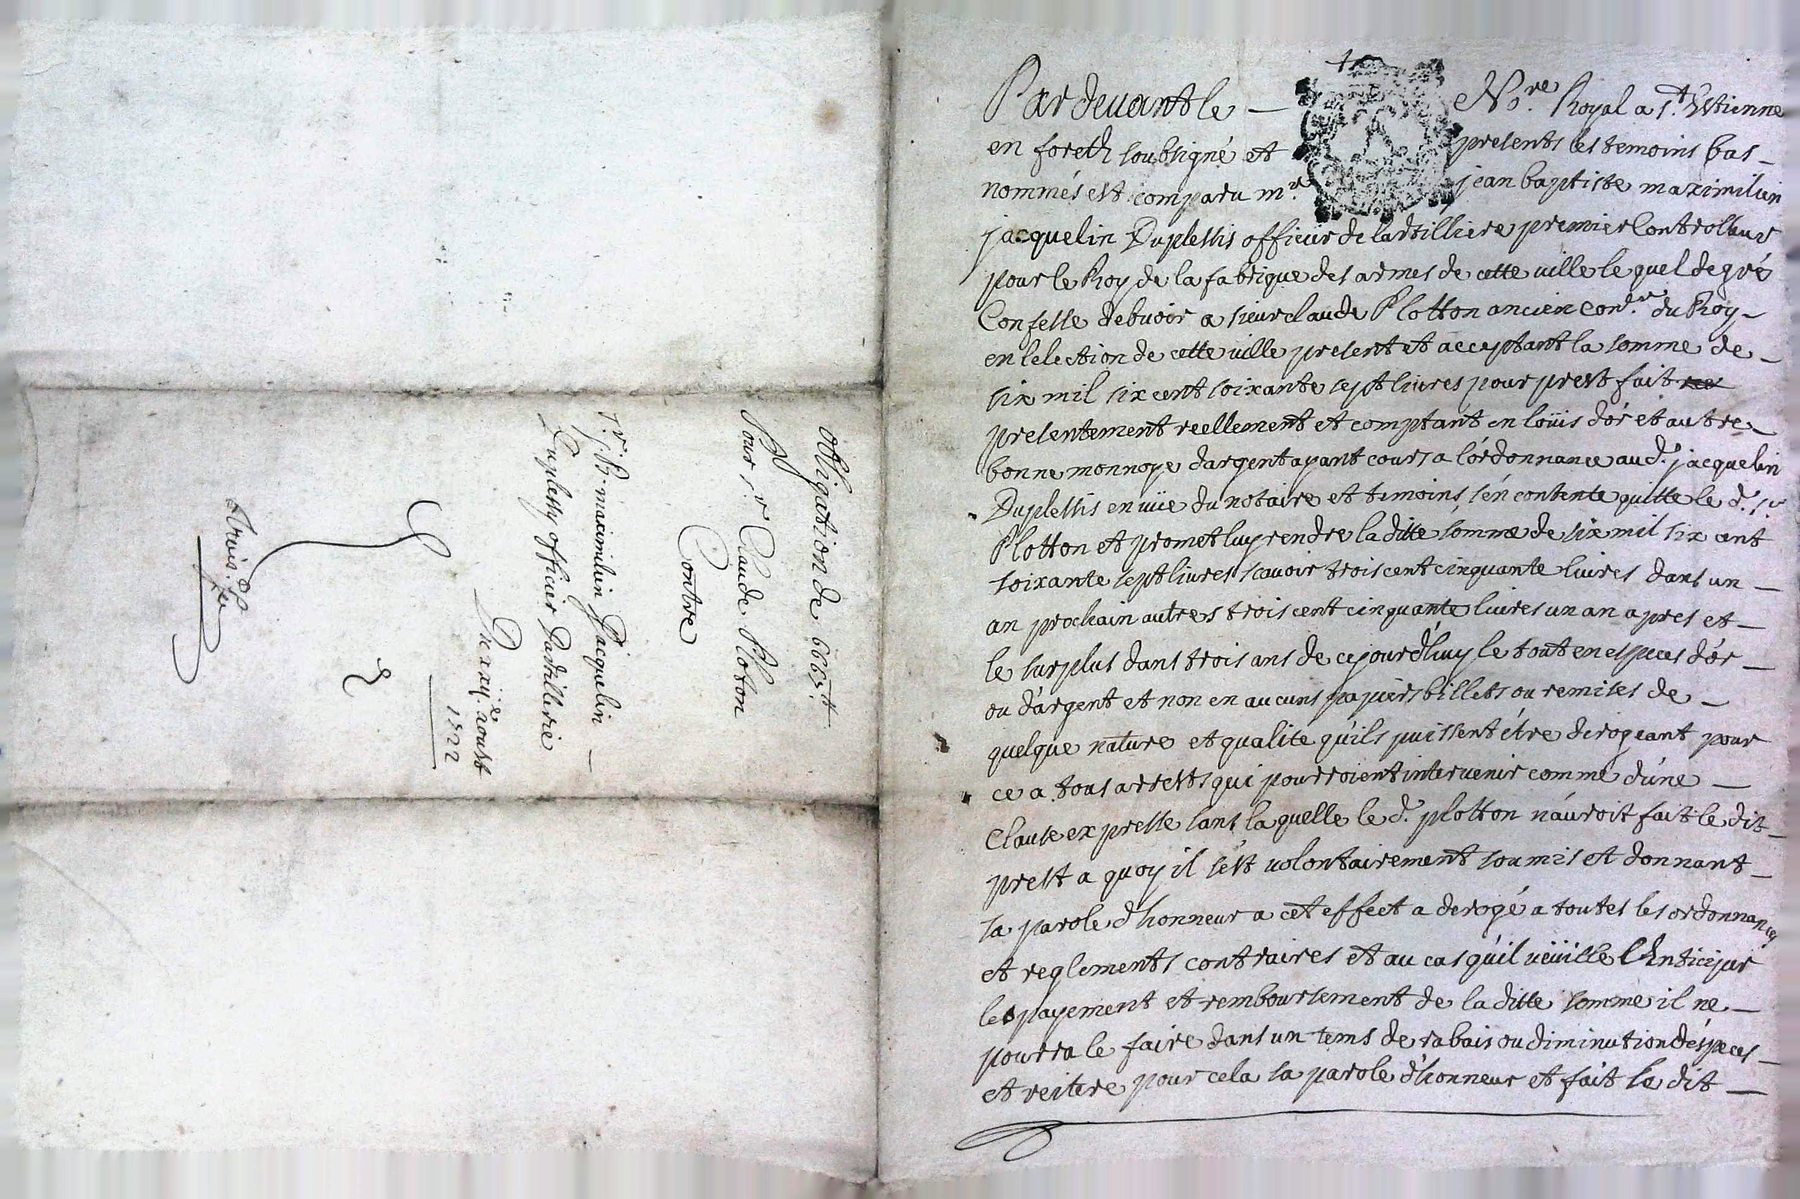 obligation de 6667.tt
Pour s.r Claude Ploton
Contre
s.r J.B. maximilien Jacquelin
Duplessy officier Dartillerie
Du xxij.e aoust
1722
trois.e
Pardevant le No.re Royal a s.t Estienne
en foretz soubsigné et presents les temoins bas
nommés est comparu m.r jean baptiste maximilien
jacquelin Duplessis officier de lartilliere premier Controlleur
pour le Roy de la fabrique des armes de cette ville le quel de gré
Confesse debuoir a sieur claude Plotton ancien con.er du Roy
en lelection de cette ville present et acceptant la somme de
six mil six cent soixante sept livres pour prest fait
presentement reellement et comptant en loüis dór et autre
bonne monnoye dargent ayant cours a lórdonnance aud.t jacquelin
Duplessis en vüe du notaire et temoins, sén contente quitte le d.t s.r
Plotton et promet luy rendre la ditte somme de six mil six cent
soixante sept livres scavoir trois cent cinquante livres dans un
an prochain autres trois cent cinquante livres un an apres et
le surplus dans trois ans de cejourdhuy le tout en especes dór
ou dárgent et non en aucuns papiers billets ou remises de
quelque nature et qualite quíls puissent étre derogeant pour
ce a tous arrests qui pourroient intervenir comme dúne
Clause expresse sans la quelle le d.t plotton náuroit fait le dit
prest a quoy il sést volontairement soumis et donnant
sa parole dhonneur a cet effect a derogé a toutes les ordonnances
et reglements contraires et au cas quíl veüille Anticiper
le payement et remboursement de la ditte somme il ne
pourra le faire dans un tems de rabais ou diminution déspeces
et reitere pour cela sa parole dhonneur et fait le dit